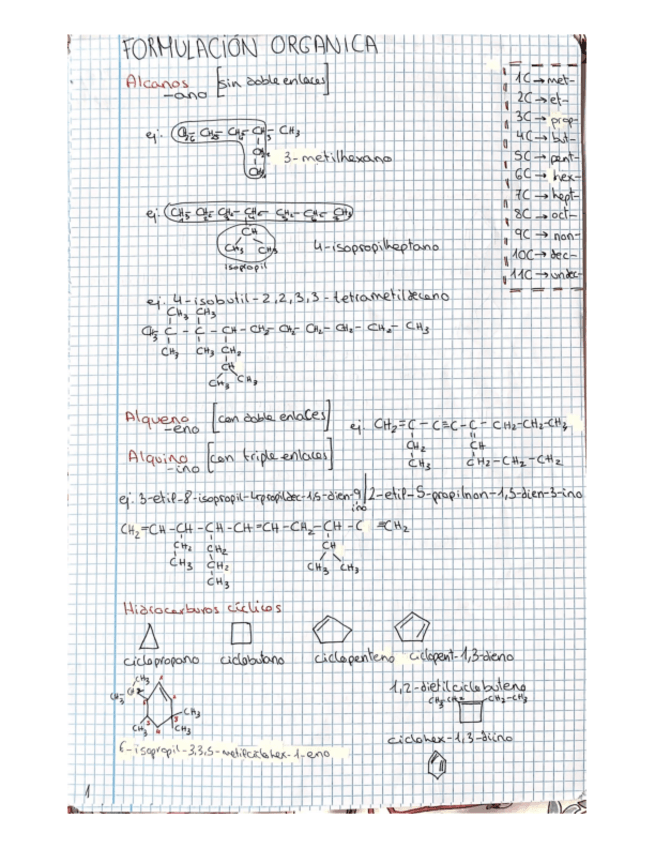 FORMULACIÓN ORGANICA
Alcanos [sin doble enlaces]
-ano
1C → met-
2C → et-
3C → prop-
4C → but-
5C → pent-
6C → hex-
7C → hept-
8C → oct-
9C → non-
10C → dec-
11C → undec-
ej: CH3 CH2- CH2- CH- CH2- CH3
CH2
CH3
3-metilhexano
ej: CH3- CH2- CH2- CH- CH2- CH2- CH3
CH
CH3 CH3
isopropil
4-isopropilheptano
ej: 4-isobutil-2,2,3,3-tetrametildecano
CH3 CH3
CH3- C - C - CH- CH2- CH2- CH2- CH2- CH2- CH3
CH3 CH3 CH2
CH
CH3 CH3
Alqueno [con doble enlaces]
-eno
Alquino [con triple enlaces]
-ino
ej. CH2=C-C≡C-C-CH2-CH2-CH3
CH2 CH
CH3 CH2-CH2-CH2
ej: 3-etil-8-isopropil-4propildec-1,5-dien-9
ino
2-etil-5-propilnon-1,5-dien-3-ino
CH2=CH-CH-CH-CH=CH-CH2-CH-C≡CH2
CH2 CH2 CH
CH3 CH2 CH3 CH3
CH3
Hidrocarburos cíclicos
ciclopropano ciclobutano ciclopenteno ciclopent-1,3-dieno
1,2-dietilciclobuteno
CH3-CH2 CH2-CH3
CH3
CH3
CH3 CH3
6-isopropil-3,3,5-metilciclohex-1-eno
ciclohex-1,3-diino
1